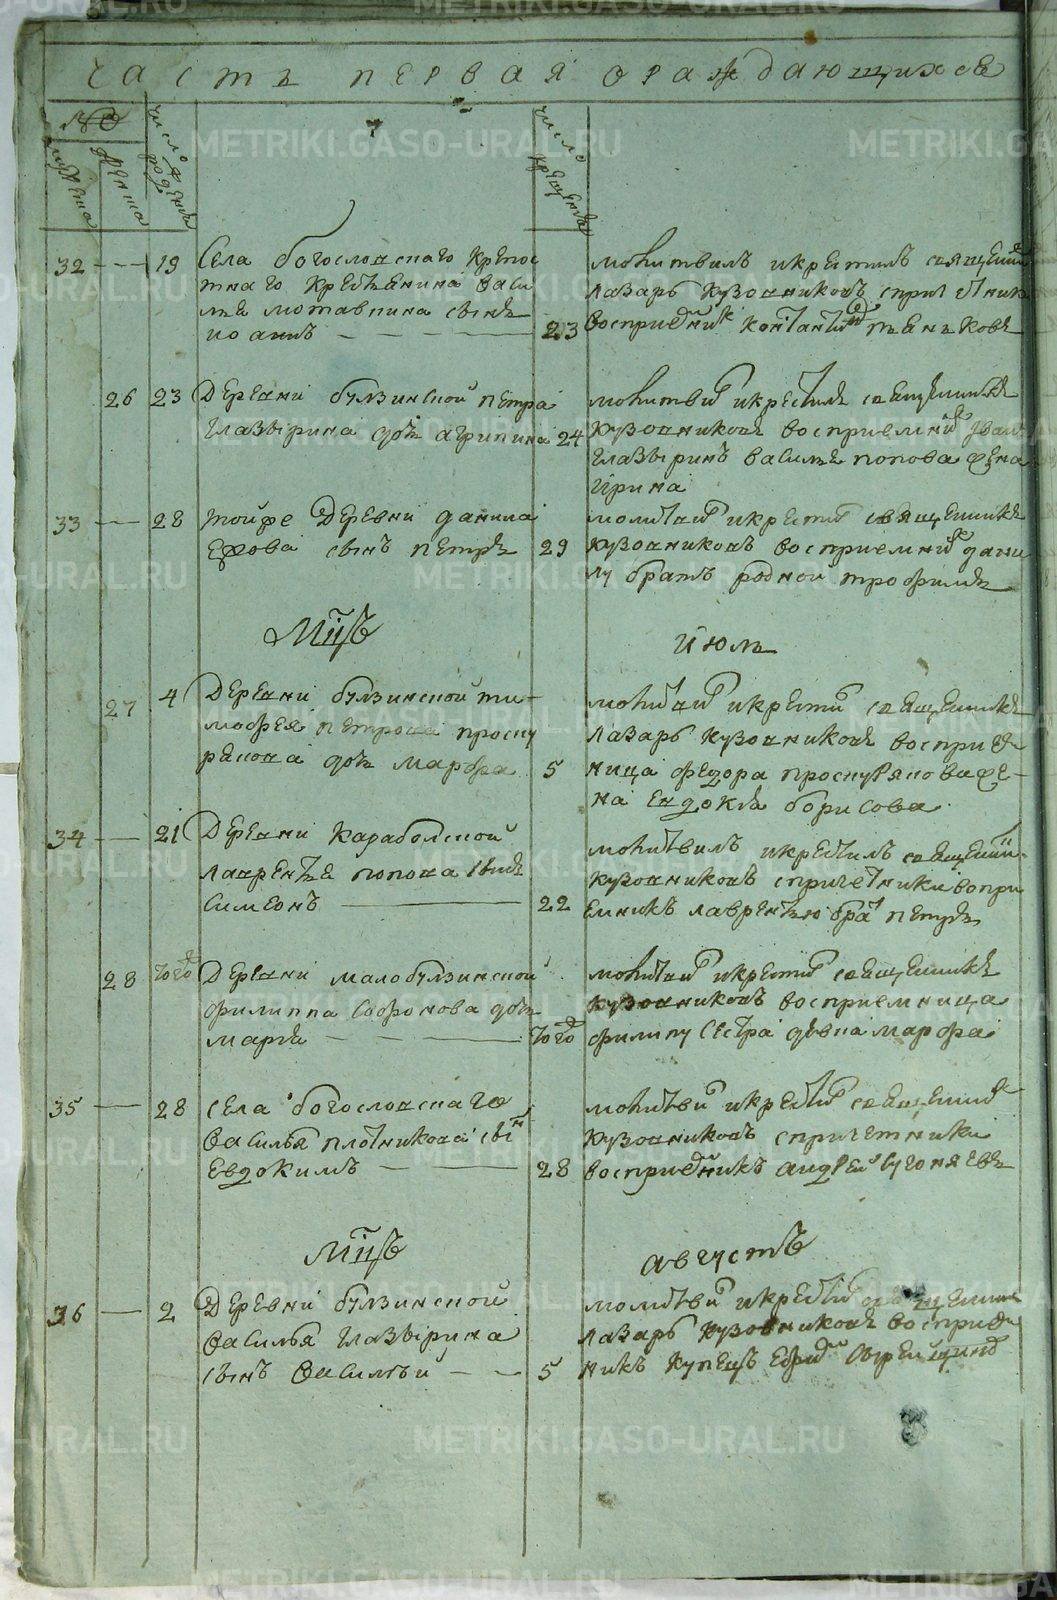 часть первая ораждающихсѧ
№
мужеска
женска
число рожденїѧ
число крещенїѧ
32 19 Села богословскаго крепос
тнаго крестьянина васи
лья мотавкина сынъ
иоанъ 23
молитвилъ и крестилъ священикъ
лазарь кузовниковъ с причетники
восприемникъ
26 23 Деревни булзинской петра
глазырина дочь агрипина 24
молитвилъ и крестилъ священникъ
кузовниковъ восприемникъ иванъ
глазыринъ василья попова жена
ирина
33 28 тойже деревни данила
ехова сынъ петръ 29
молитвилъ и крестилъ священникъ
кузовниковъ восприемникъ дани
лу братъ родной трофимъ
Мцъ июль
27 4 Деревни булзинской ти-
мофея петрова проску
рякова дочь марфа 5
молитвилъ и крестилъ священникъ
лазарь кузовниковъ восприем
ница федора проскурякова же-
на евдокия борисова
34 21 Деревни караболской
лаврентья попова сынъ
симеонъ 22
молитвилъ и крестилъ священникъ
кузовниковъ с причетники воспри
емникъ лаврентью братъ петръ
28 того Деревни малобулзинской
филиппа софонова дочь
марья того
молитвилъ и крестилъ священникъ
кузовниковъ восприемница
филипу сестра девка марфа
35 28 села богословскаго
василья плотникова сынъ
евдокимъ 28
молитвилъ и крестилъ священникъ
кузовниковъ с причетники
восприемникъ андрей
Мцъ августъ
36 2 Деревни булзинской
василья глазырина
сынъ василий 5
молитвилъ и крестилъ священникъ
лазарь кузовниковъ восприем
никъ купецъ
METRIKI.GASO-URAL.RU